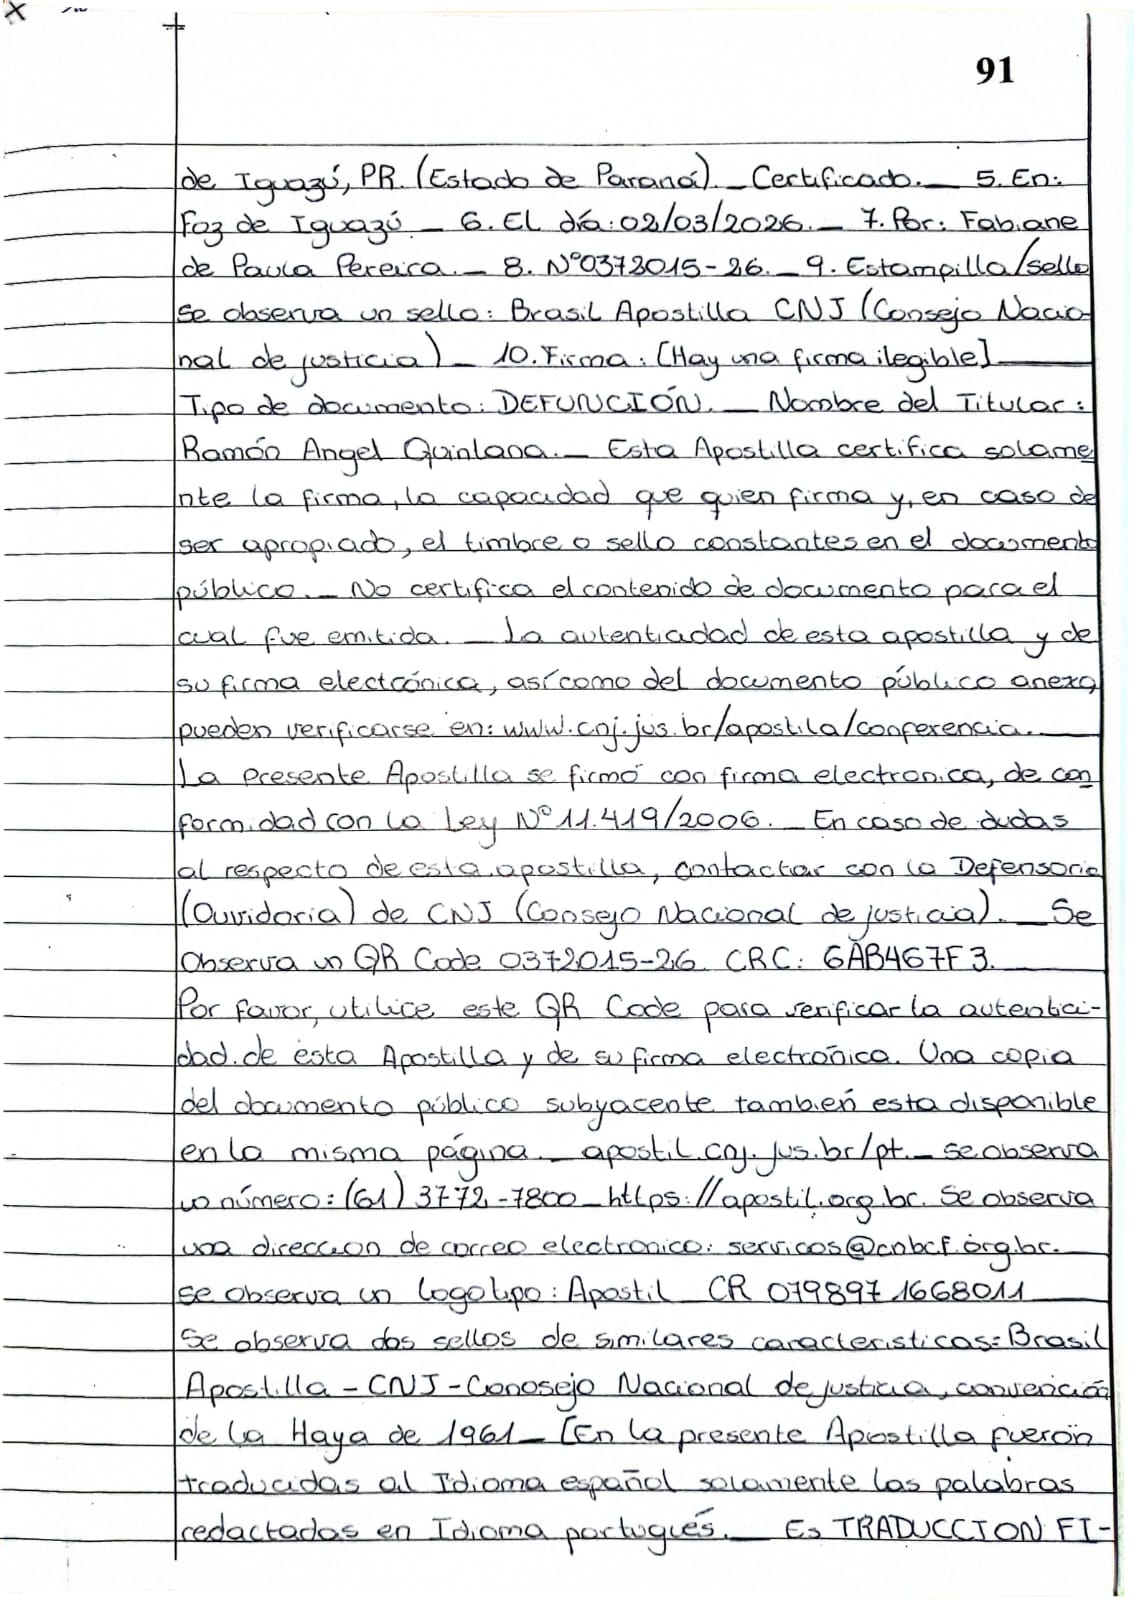 91
de Iguazú, PR. (Estado de Paraná). _ Certificado. _ 5. En:
Foz de Iguazú _ 6. El día: 02/03/2026. _ 7. Por: Fabiane
de Paula Pereira. _ 8. N°0372015-26. _ 9. Estampilla/sello
Se observa un sello: Brasil Apostilla CNJ (Consejo Nacio-
nal de justicia) _ 10. Firma: [Hay una firma ilegible]
Tipo de documento: DEFUNCIÓN. _ Nombre del Titular:
Ramón Angel Quintana. _ Esta Apostilla certifica solame
nte la firma, la capacidad que quien firma y, en caso de
ser apropiado, el timbre o sello constantes en el documento
público. _ No certifica el contenido de documento para el
cual fue emitida. _ La autenticidad de esta apostilla y de
su firma electrónica, así como del documento público anexo,
pueden verificarse en: www.cnj.jus.br/apostila/conferencia.
La presente Apostilla se firmó con firma electronica, de con
formidad con la Ley N° 11.419/2006. _ En caso de dudas
al respecto de esta apostilla, contactar con la Defensoria
(Ouvidoria) de CNJ (Consejo Nacional de justicia). _ Se
Observa un QR Code 0372015-26 CRC: 6AB467F3.
Por favor, utilice este QR Code para verificar la autentici-
dad de esta Apostilla y de su firma electrónica. Una copia
del documento público subyacente también esta disponible
en la misma página. _ apostil.cnj.jus.br/pt. _ se observa
un número: (61) 3772-7800 _ https://apostil.org.br. Se observa
una direccion de correo electronico: servicos@cnbcf.org.br.
se observa un logotipo: Apostil _ CR 079897 1668011
Se observa dos sellos de similares caracteristicas: Brasil
Apostilla - CNJ - Conosejo Nacional de justicia, convención
de la Haya de 1961 _ [En la presente Apostilla fueron
traducidas al Idioma español solamente las palabras
redactadas en Idioma portugués. _ Es TRADUCCION FI-